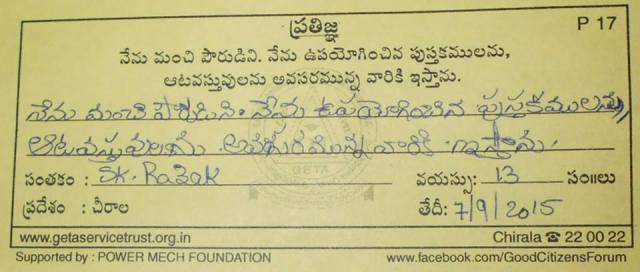 ప్రతిజ్ఞ P 17
నేను మంచి పౌరుడిని. నేను ఉపయోగించిన పుస్తకములను,
ఆటవస్తువులను అవసరమున్న వారికి ఇస్తాను.
నేను మంచి పౌరుడిని నేను ఉపయోగించిన పుస్తకములను,
ఆటవస్తువులను అవసరమున్న వారికి ఇస్తాను.
సంతకం : SK. Razak వయస్సు: 13 సం॥లు
ప్రదేశం : చీరాల తేదీ: 7/9/2015
GETA
www.getaservicetrust.org.in Chirala ☎ 22 00 22
Supported by : POWER MECH FOUNDATION www.facebook.com/GoodCitizensForum